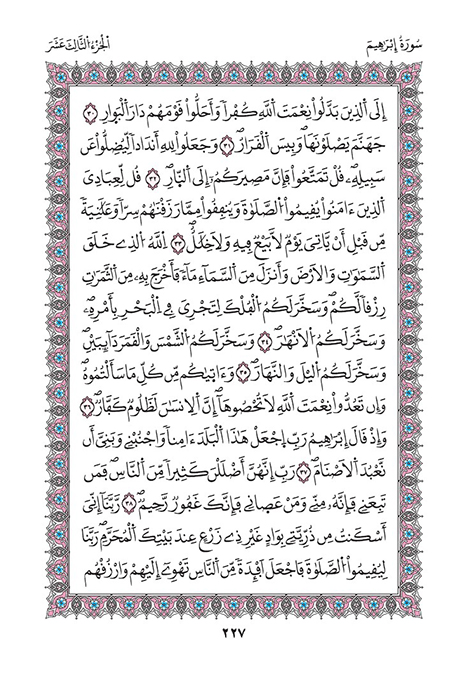 سُورَةُ إِبْرَاهِيمَ
اَلْجُزْءُ الثَّالِثَ عَشَرَ
إِلَى اَلذِينَ بَدَّلُواْ نِعْمَتَ اَللَّهِ كُفْراٗ وَأَحَلُّواْ قَوْمَهُمْ دَارَ اَلْبَوَارِ ٣٠
جَهَنَّمَ يَصْلَوْنَهَاۖ وَبِيسَ اَلْقَرَارُۖ ٣١ وَجَعَلُواْ لِلهِ أَندَاداٗ لِّيُضِلُّواْ عَن
سَبِيلِهِۦۖ قُلْ تَمَتَّعُواْ فَإِنَّ مَصِيرَكُمُۥٓ إِلَى اَلنّ۪ارِۖ ٣٢ قُل لِّعِبَادِيَ
اَلذِينَ ءَامَنُواْ يُقِيمُواْ اُلصَّلَوٰةَ وَيُنفِقُواْ مِمَّا رَزَقْنَٰهُمْ سِرّاٗ وَعَلَٰنِيَةٗ
مِّن قَبْلِ أَنْ يَّاتِيَ يَوْمٞ لَّا بَيْعٞ فِيهِ وَلَا خِلَٰلٌۖ ٣٣ اِ۬للَّهُ اُلذِے خَلَقَ
اَلسَّمَٰوَٰتِ وَالَارْضَ وَأَنزَلَ مِنَ اَلسَّمَآءِ مَآءٗ فَأَخْرَجَ بِهِۦ مِنَ اَلثَّمَرَٰتِ
رِزْقاٗ لَّكُمْۖ وَسَخَّرَ لَكُمُ اُلْفُلْكَ لِتَجْرِيَ فِي اِلْبَحْرِ بِأَمْرِهِۦۖ
وَسَخَّرَ لَكُمُ اُلَانْهَٰرَۖ ٣٤ وَسَخَّرَ لَكُمُ اُلشَّمْسَ وَالْقَمَرَ دَآئِبَيْنِۖ
وَسَخَّرَ لَكُمُ اُليْلَ وَالنَّهَارَۖ ٣٥ وَءَات۪يٰكُم مِّن كُلِّ مَا سَأَلْتُمُوهُۖ
وَإِن تَعُدُّواْ نِعْمَتَ اَللَّهِ لَا تُحْصُوهَاۖ إِنَّ اَلِانسَٰنَ لَظَلُومٞ كَفَّارٞۖ ٣٦
وَإِذْ قَالَ إِبْرَٰهِيمُ رَبِّ اِ۪جْعَلْ هَٰذَا اَلْبَلَدَ ءَامِناٗ وَاجْنُبْنِے وَبَنِيَّ أَن
نَّعْبُدَ اَلَاصْنَامَۖ ٣٧ رَبِّ إِنَّهُنَّ أَضْلَلْنَ كَثِيراٗ مِّنَ اَلنَّاسِۖ فَمَن
تَبِعَنِے فَإِنَّهُۥ مِنِّےۖ وَمَنْ عَصَانِے فَإِنَّكَ غَفُورٞ رَّحِيمٞۖ ٣٨ رَّبَّنَآ إِنِّيَ
أَسْكَنتُ مِن ذُرِّيَّتِے بِوَادٍ غَيْرِ ذِے زَرْعٍ عِندَ بَيْتِكَ اَلْمُحَرَّمِۖ رَبَّنَا
لِيُقِيمُواْ اُلصَّلَوٰةَۖ فَاجْعَلَ اَفْـِٕدَةٗ مِّنَ اَلنَّاسِ تَهْوِےٓ إِلَيْهِمْ وَارْزُقْهُم
٢٢٧